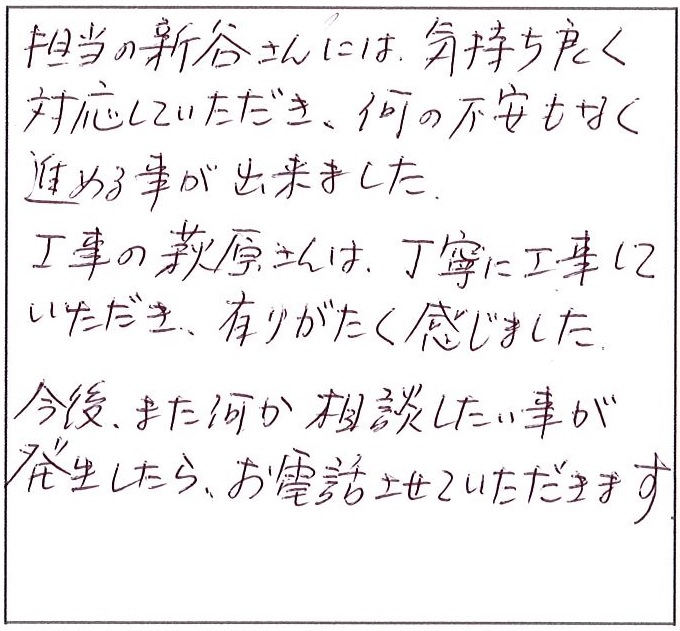 担当の新谷さんには、気持ち良く
対応していただき、何の不安もなく
進める事が出来ました。
工事の萩原さんは、丁寧に工事して
いただき、有りがたく感じました。
今後、また何か相談したい事が
発生したら、お電話させていただきます